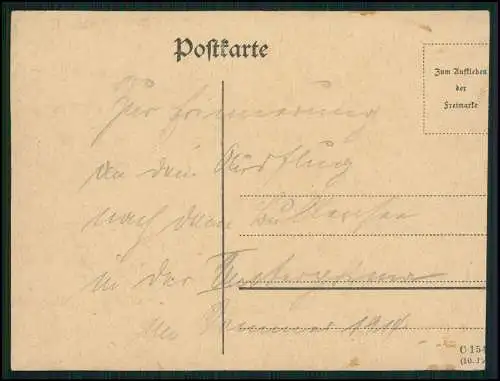 Postkarte
Zum Aufkleben
der
Freimarke
Zur Erinnerung
an den Ausflug
nach dem
in der
im Sommer 191
C 154